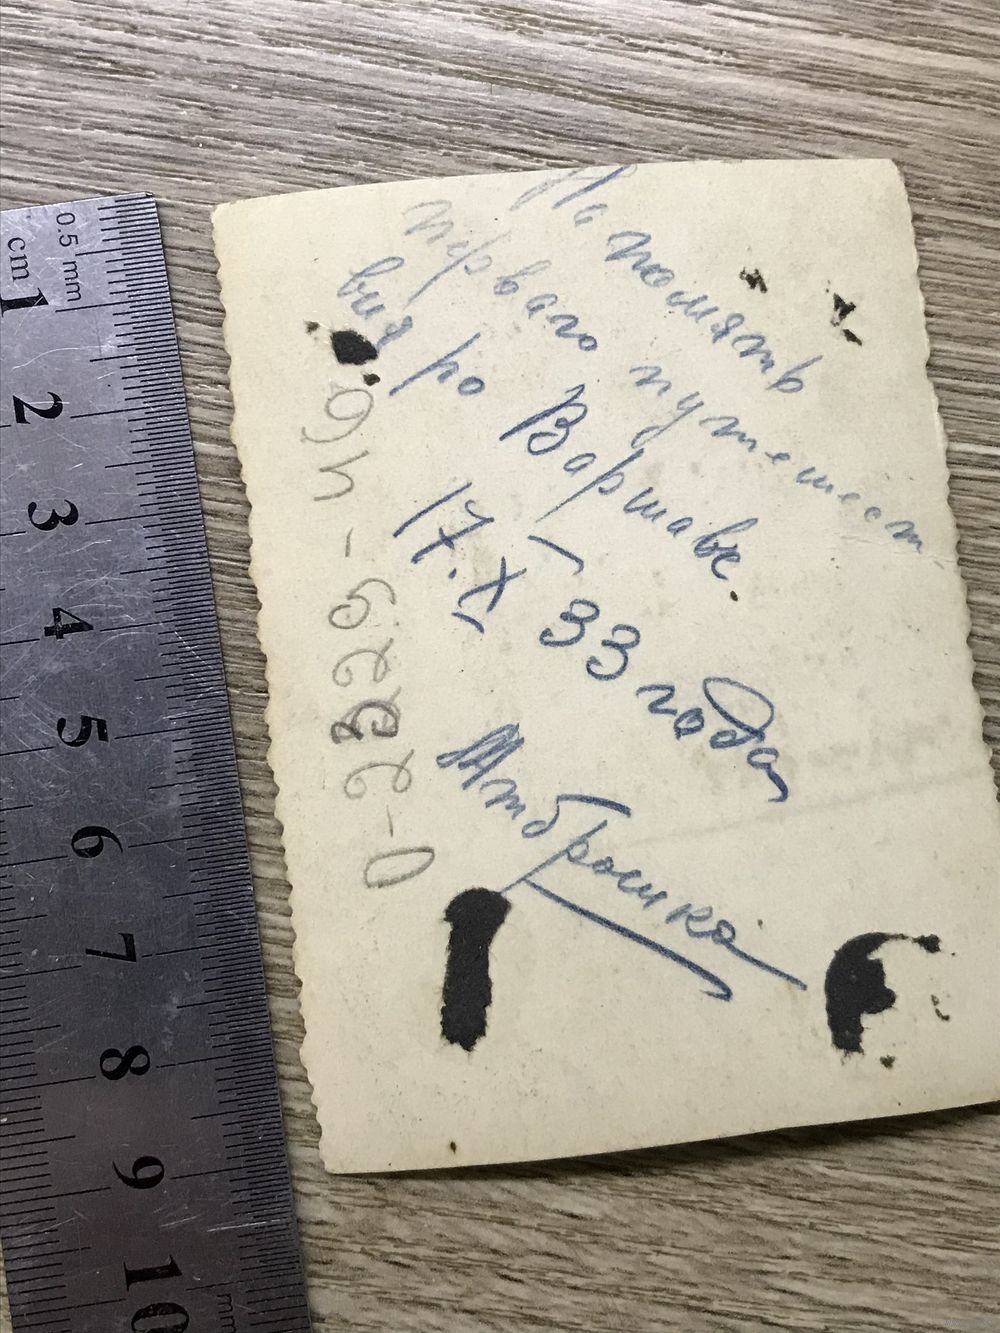 На помять
перваго путешест
вия ро Варшаве.
17.X 33 года
0-2329-46.
0.5 mm
cm
1
2
3
4
5
6
7
8
9
10
mm